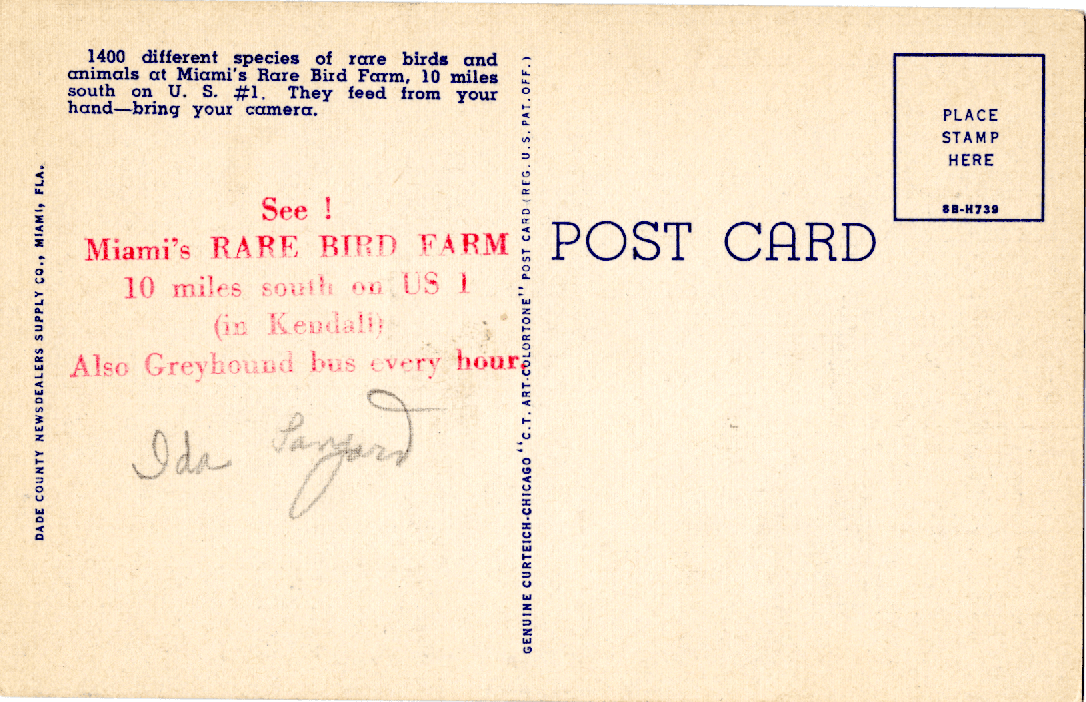 1400 different species of rare birds and
animals at Miami's Rare Bird Farm, 10 miles
south on U. S. #1. They feed from your
hand—bring your camera.
See !
Miami's RARE BIRD FARM
10 miles south on US 1
(in Kendall)
Also Greyhound bus every hour.
Ida
DADE COUNTY NEWSDEALERS SUPPLY CO., MIAMI, FLA.
GENUINE CURTEICH-CHICAGO "C.T. ART-COLORTONE" POST CARD (REG. U.S. PAT. OFF.)
POST CARD
PLACE
STAMP
HERE
8B-H739